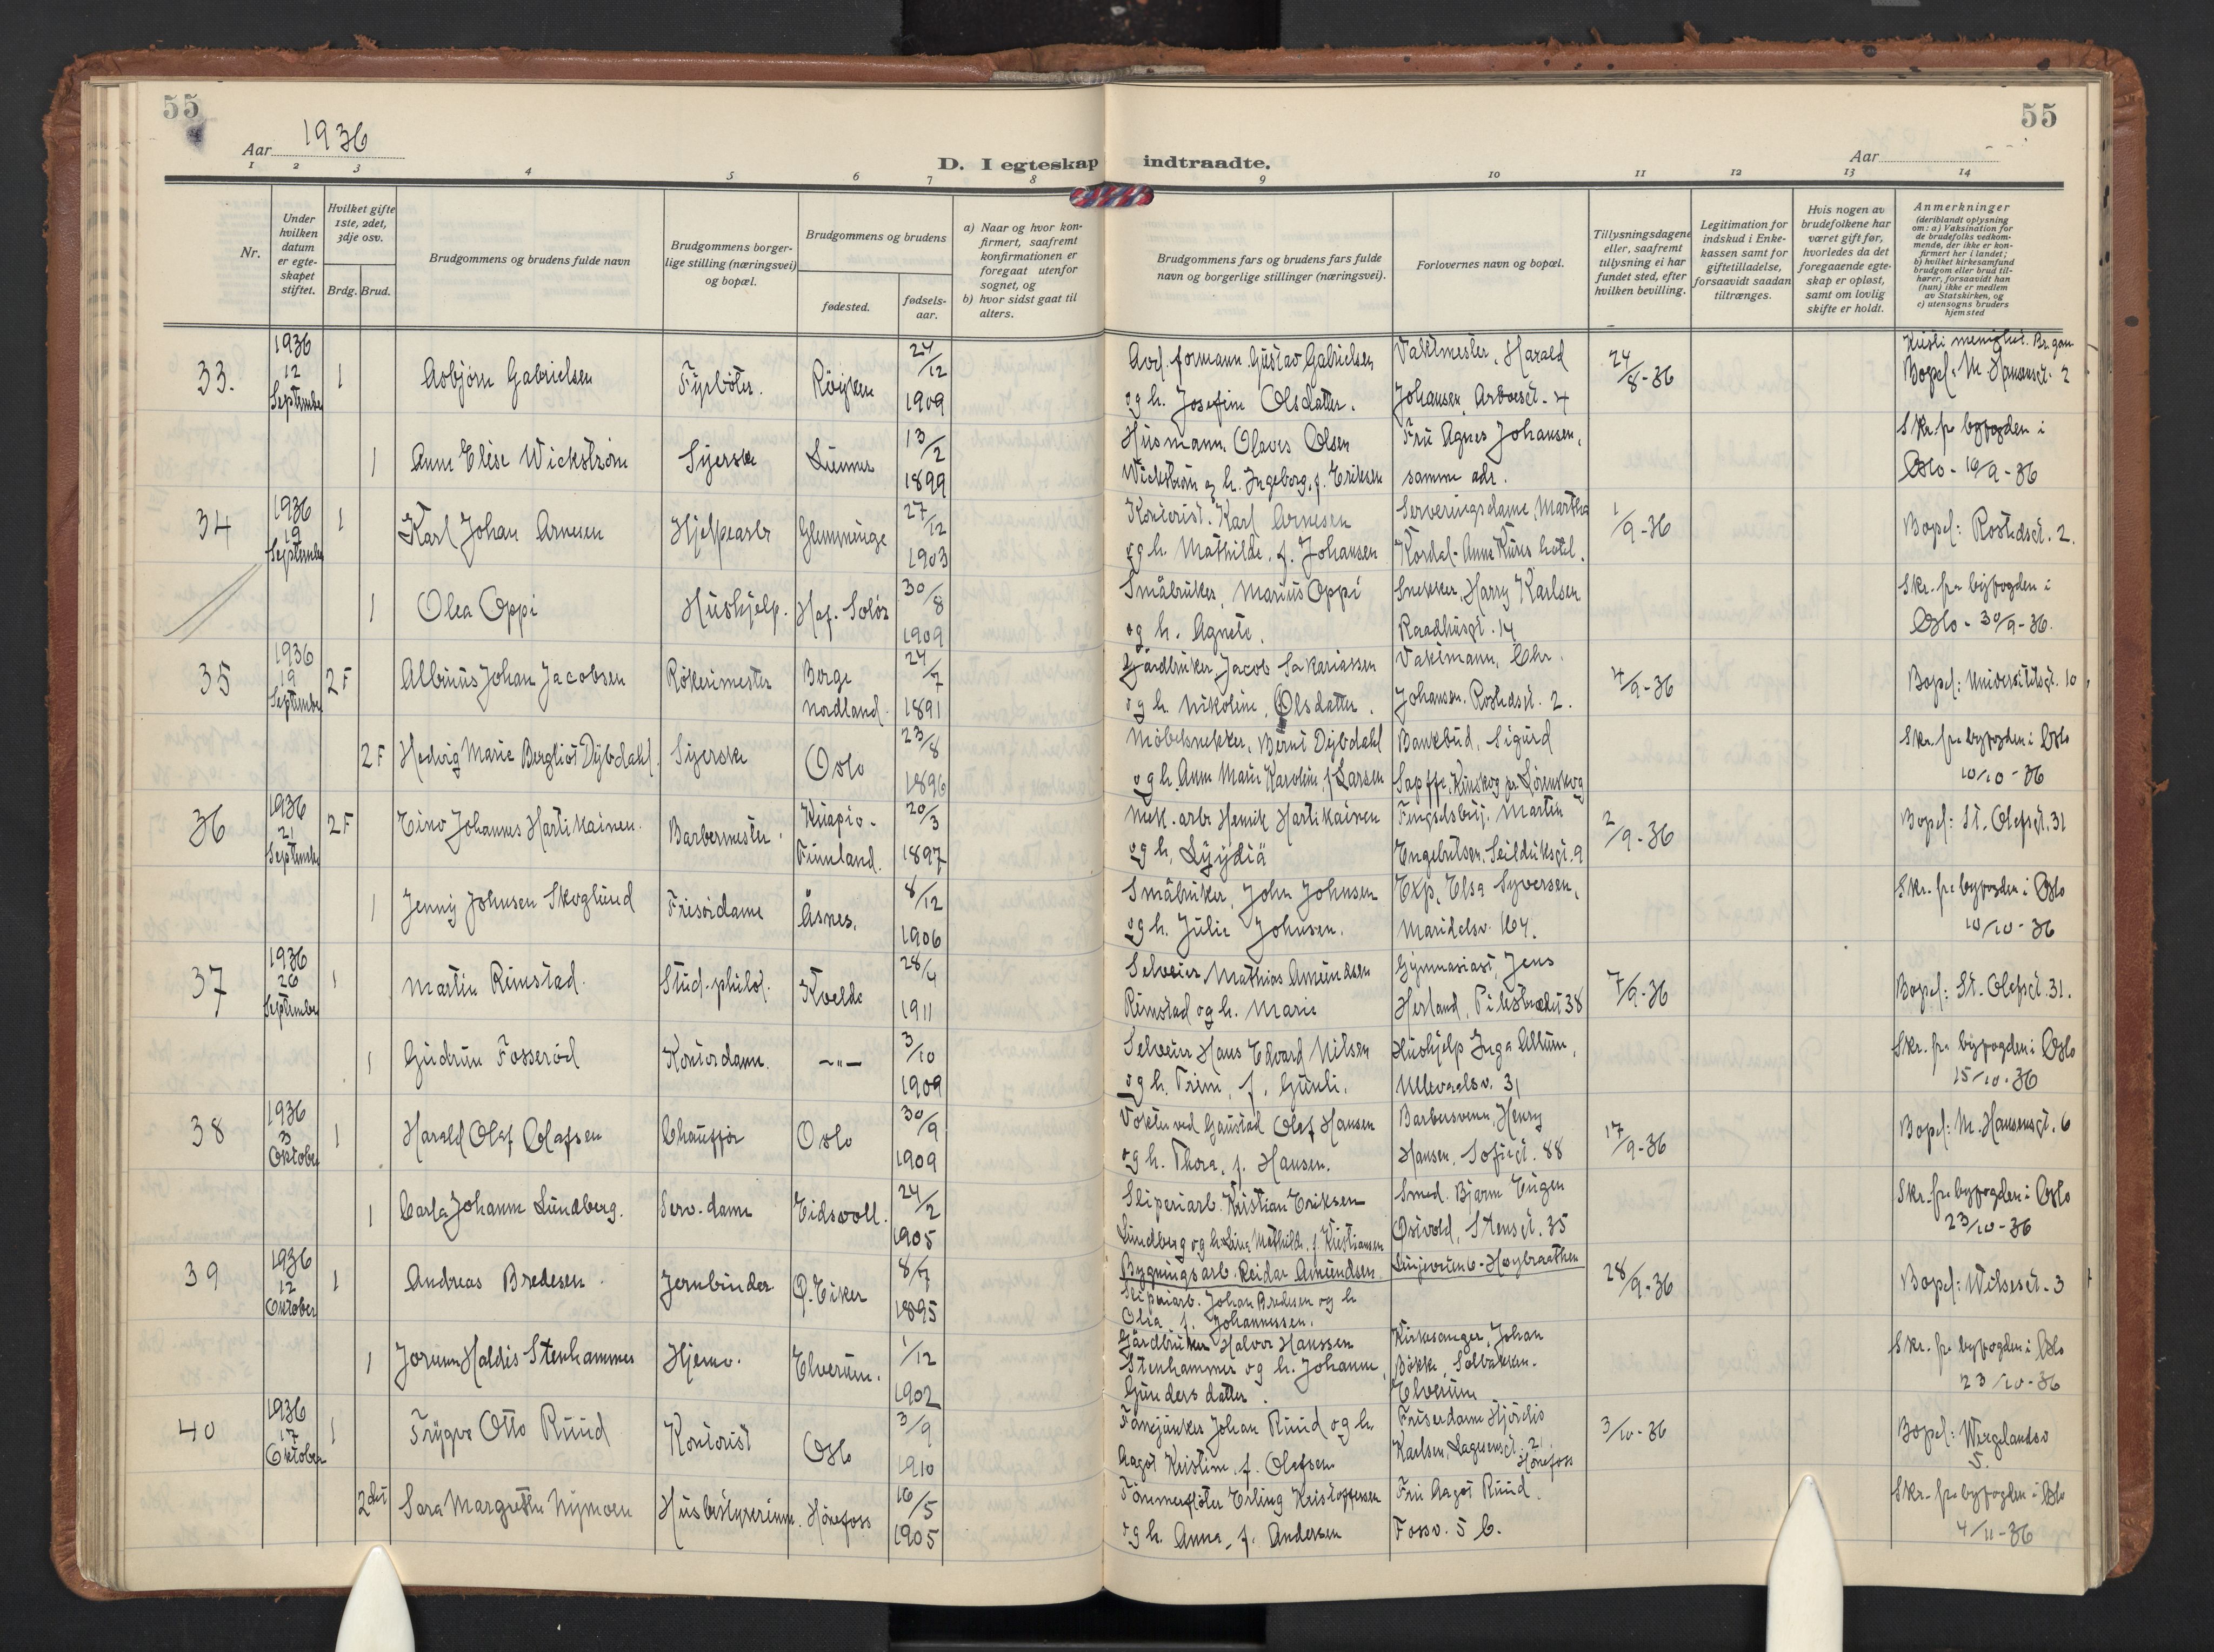 55
55
Aar 1936
D. I egteskap indtraadte.
Aar
1 2 3 4 5 6 7 8 9 10 11 12 13 14
Nr.
Under hvilken datum er egte-skapet stiftet.
Hvilket gifte 1ste, 2det, 3dje osv.
Brdg. Brud.
Brudgommens og brudens fulde navn
Brudgommens borger-lige stilling (næringsvei) og bopæl.
Brudgommens og brudens
fødested.
fødsels-aar.
a) Naar og hvor kon-firmert, saafremt konfirmationen er foregaat utenfor sognet, og
b) hvor sidst gaat til alters.
Brudgommens fars og brudens fars fulde navn og borgerlige stillinger (næringsvei).
Forlovernes navn og bopæl.
Tillysningsdagene eller, saafremt tillysning ei har fundet sted, efter hvilken bevilling.
Legitimation for indskud i Enke-kassen samt for giftetilladelse, forsaavidt saadan tiltrænges.
Hvis nogen av brudefolkene har været gift før, hvorledes da det foregaaende egte-skap er opløst, samt om lovlig skifte er holdt.
Anmerkninger
(deriblandt oplysning om: a) Vaksination for de brudefolks vedkom-mende, der ikke er kon-firmert her i landet; b) hvilket kirkesamfund brudgom eller brud til-hører, forsaavidt han (hun) ikke er medlem av Statskirken, og c) utensogns bruders hjemsted
33. 1936 12 September 1 Asbjørn Gabrielsen Fyrbøter. Røyken 24/12 1909
Avd. formann Gustav Gabrielsen og h. Josefine Olsdatter. Vaktmester, Harald Johansen, Arbosgt. 4 24/8-36 Bopel: M. Hansensgt. 2
1 Anne Elise Wickstrøm Syerske Lunner 13/2 1899
Husmann Olaves Olsen Wickstrøm og h. Ingeborg, f. Eriksen Fru Agnes Johansen, samme adr. Skr. fra byfogden i Oslo - 16/9-36
34 1936 19 September 1 Karl Johan Arnesen Hjelpearb Glemminge 27/12 1903
Kontorist. Karl Arnesen og h. Mathilde, f. Johansen Serveringsdame, Martha Kordal - Anne Kures hotel. 1/9-36 Bopel: Rostedsgt. 2.
1 Olea Oppi Hushjelp. Hof. Solør 30/8 1909
Småbruker, Marius Oppi og h. Agnete. Snekker, Harry Karlsen Raadhusgt. 14 Skr. fra byfogden i Oslo - 30/9-36.
35 1936 19 September 2F Albinus Johan Jacobsen Røkerimester Borge Nordland. 24/7 1891
Gårdbruker, Jacob Sakariassen og h. Nikoline, Olsdatter. Vaktmann, Chr. Johansen. Rostedsgt. 2. 4/9-36 Bopel: Universitetsgt. 10
2F Hedvig Marie Bergliot Dybdahl. Syerske Oslo 23/8 1896
Møbelsnekker, Bernt Dybdahl og h. Anne Marie Karoline f. Larsen Bankbud, Sigurd Skr. fra byfogden i Oslo 10/10-36
36 1936 21 September 2F Eino Johannes Hartikainen. Barbermester. Kuopio - Finnland. 20/3 1897
Mek. arb. Henrik Hartikainen og h, Lyydiä Fengselsbetj. Martin Engebretsen, Seilduksgt. 9 2/9-36 Bopel: St. Olafsgt. 31
1 Jenny Johnsen Skoglund Frisørdame Åsnes. 8/12 1906
Småbruker, John Johnsen og h. Julie Johnsen. Exp. Elsa Syversen, Maridalsv. 164. Skr. fra byfogden i Oslo 10/10-36
37 1936 26 September 1 Martin Rimstad. Stud. philol. Kvelde 28/4 1911
Selveier Mathias Amundsen Rimstad og h. Marie Gymnasiast, Jens Herland, Pilestredet 38 7/9-36 Bopel: St. Olafsgt. 31.
1 Gudrun Fosserød Kontordame. -"- 3/10 1909
Selveier Hans Edvard Nilsen og h. Trine, f. Gunli. Hushjelp Inga Allum, Ullevaalsv. 31 Skr. fra byfogden i Oslo 15/10-36
38 1936 3 Oktober 1 Harald Olaf Olafsen Chauffør Oslo 30/9 1909
Vokter ved Gaustad Olaf Hansen og h. Thora, f. Hansen. Barbersvenn, Henry Hansen, Sofiegt. 88 17/9-36 Bopel: M. Hansensgt. 6
1 Carla Johanne Lundberg. Serv. dame Eidsvoll. 24/2 1905
Sliperiarb. Kristian Eriksen Lundberg og h. Lina Mathilde, f. Kristiansen Smed. Bjarne Eugen Østvold, Stensgt. 35 Skr. fra byfogden i Oslo 23/10-36
39 1936 12 Oktober 1 Andreas Bredesen. Jernbinder Ø. Eiker 8/7 1895
Bygningsarb. Reidar Amundsen Linjeveien 6 - Høybraathen
Sliperiarb. Johan Bredesen og h. Olea f. Johannessen. 28/9-36 Bopel: Wilsesgt. 3
1 Jorunn Haldis Stenhammer Hjemv. Elverum. 1/12 1902
Gårdbruker Halvor Hanssen Stenhammer og h. Johanne, Gundersdatter. Kirkesanger, Johan Bakke, Solbakken. Elverum Skr. fra byfogden i Oslo 23/10-36
40 1936 17 Oktober 1 Trygve Otto Ruud Kontorist Oslo 3/9 1910
Fanejunker Johan Ruud og h. Aagot Kristine, f. Olafsen Friserdame Hjørdis Karlsen, Lagesensgt. 21 Hønefoss 3/10-36 Bopel: Wergelandsv 5.
2det Sara Margrethe Nymoen Husbestyrerinne. Hønefoss 16/5 1905
Tømmerfløter Erling Kristoffersen og h. Anna, f. Andersen Fru Aagot Ruud. Fossv. 5 b. Skr. fra byfogden i Oslo 4/11-36